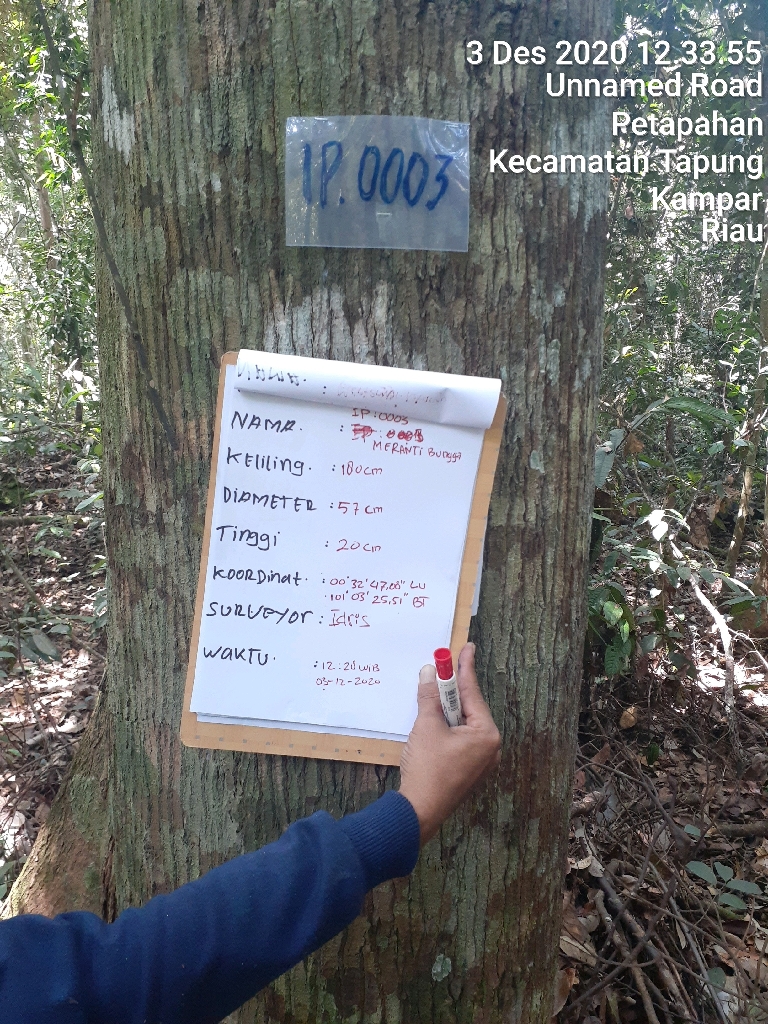 3 Des 2020 12.33.55
Unnamed Road
Petapahan
Kecamatan Tapung
Kampar
Riau
IP. 0003
NAMA. : IP:0003
MERANTI Bungga
Keliling. : 180 cm
DIAMETER : 57 cm
Tinggi : 20 cm
Koordinat. : 00°32'47.06" LU
101°03'25.51" BT
SURVEYOR : Idris
WAKTU. : 12:20 WIB
03-12-2020